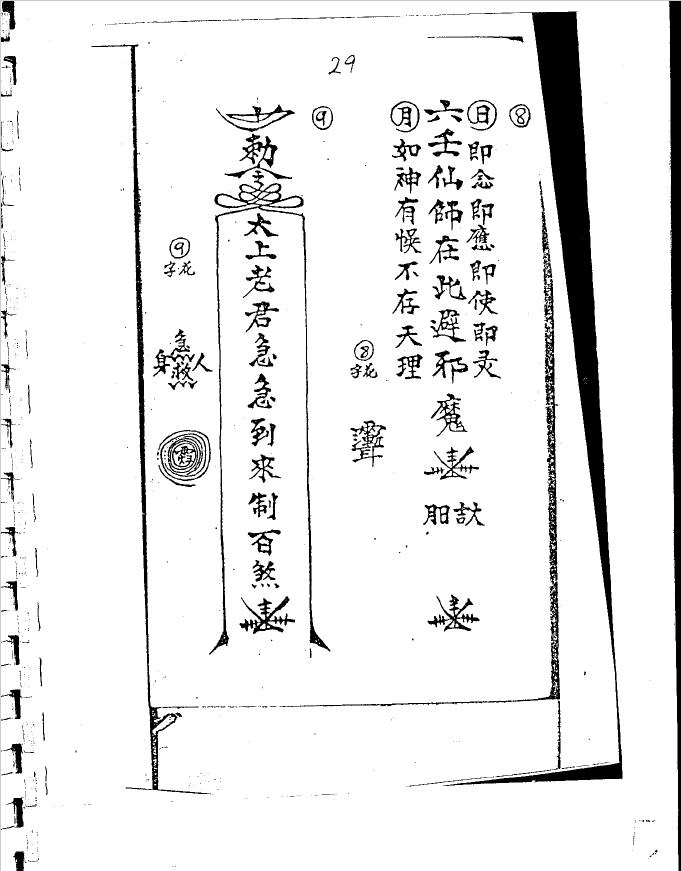 29
⑧
日 即念即應即使即灵
六壬仙師在此避邪魔
月 如神有悞不存天理
⑧
字花
⑨
勅
太上老君急急到來制百煞
⑨
字花
急
身救人
霞